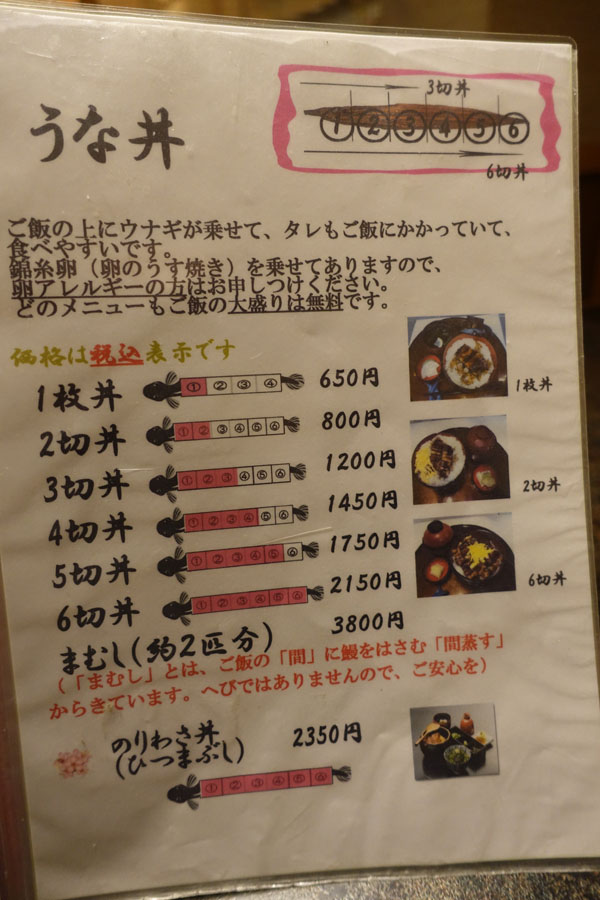 うな丼
3切丼
①②③④⑤⑥
6切丼
ご飯の上にウナギが乗せて、タレもご飯にかかっていて、
食べやすいです。
錦糸卵（卵のうす焼き）を乗せてありますので、
卵アレルギーの方はお申しつけください。
どのメニューもご飯の大盛りは無料です。
価格は税込表示です
1枚丼 ①②③④ 650円
2切丼 ①②③④⑤⑥ 800円
3切丼 ①②③④⑤⑥ 1200円
4切丼 ①②③④⑤⑥ 1450円
5切丼 ①②③④⑤⑥ 1750円
6切丼 ①②③④⑤⑥ 2150円
まむし(約2匹分) 3800円
（「まむし」とは、ご飯の「間」に鰻をはさむ「間蒸す」
からきています。へびではありませんので、ご安心を）
のりわさ丼 2350円
(ひつまぶし)
①②③④⑤⑥
1枚丼
2切丼
6切丼